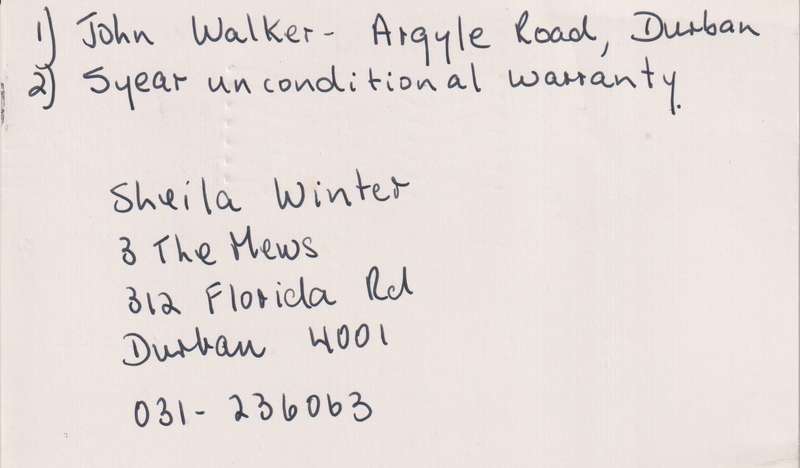 1) John Walker - Argyle Road, Durban
2) 5year unconditional warranty.
Sheila Winter
3 The Mews
312 Florida Rd
Durban 4001
031- 236063